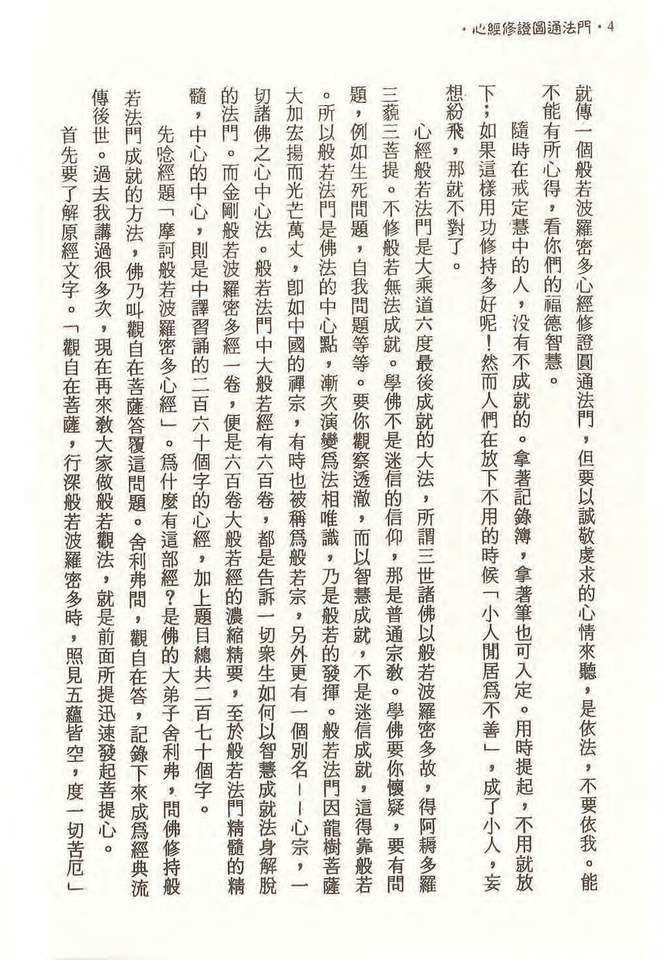 ·心經修證圓通法門·4
就傳一個般若波羅密多心經修證圓通法門，但要以誠敬虔求的心情來聽，是依法，不要依我。能
不能有所心得，看你們的福德智慧。
隨時在戒定慧中的人，没有不成就的。拿著記錄簿，拿著筆也可入定。用時提起，不用就放
下；如果這樣用功修持多好呢！然而人們在放下不用的時候「小人閒居爲不善」，成了小人，妄
想紛飛，那就不對了。
心經般若法門是大乘道六度最後成就的大法，所謂三世諸佛以般若波羅密多故，得阿耨多羅
三藐三菩提。不修般若無法成就。學佛不是迷信的信仰，那是普通宗教。學佛要你懷疑，要有問
題，例如生死問題，自我問題等等。要你觀察透澈，而以智慧成就，不是迷信成就，這得靠般若
。所以般若法門是佛法的中心點，漸次演變爲法相唯識，乃是般若的發揮。般若法門因龍樹菩薩
大加宏揚而光芒萬丈，卽如中國的禪宗，有時也被稱爲般若宗，另外更有一個別名——心宗，一
切諸佛之心中心法。般若法門中大般若經有六百卷，都是告訴一切衆生如何以智慧成就法身解脫
的法門。而金剛般若波羅密多經一卷，便是六百卷大般若經的濃縮精要，至於般若法門精髓的精
髓，中心的中心，則是中譯習誦的二百六十個字的心經，加上題目總共二百七十個字。
先唸經題「摩訶般若波羅密多心經」。爲什麼有這部經？是佛的大弟子舍利弗，問佛修持般
若法門成就的方法，佛乃叫觀自在菩薩答覆這問題。舍利弗問，觀自在答，記錄下來成爲經典流
傳後世。過去我講過很多次，現在再來敎大家做般若觀法，就是前面所提迅速發起菩提心。
首先要了解原經文字。「觀自在菩薩，行深般若波羅密多時，照見五蘊皆空，度一切苦厄」